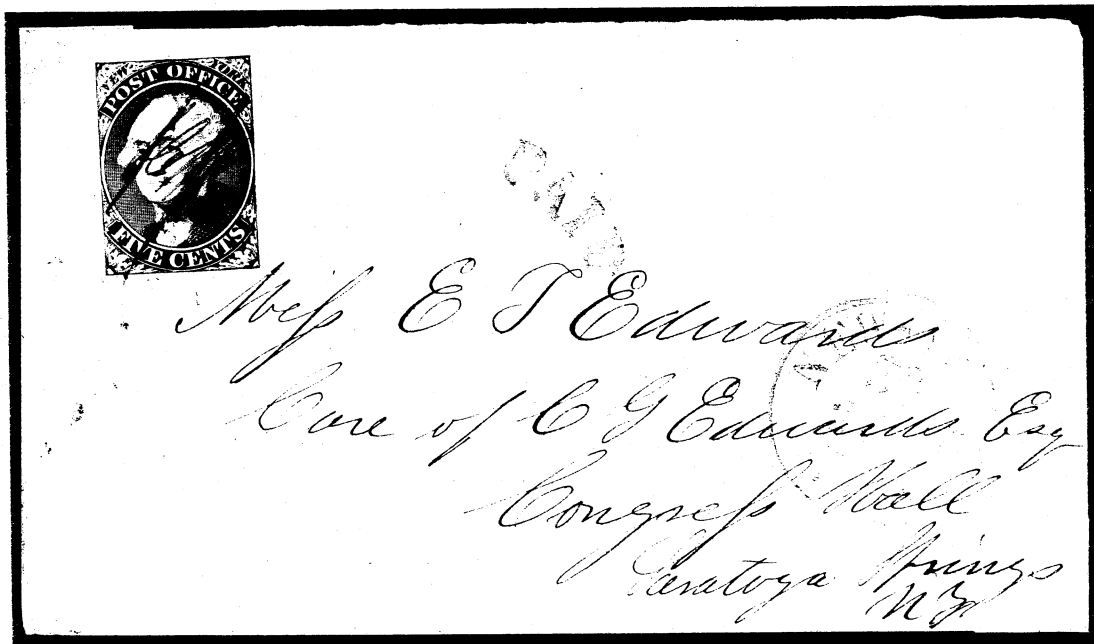 NEW YORK
POST OFFICE
FIVE CENTS
PAID
Miss E T Edwards
Care of C G Edwards Esq
Congress Hall
Saratoga Springs
N Y